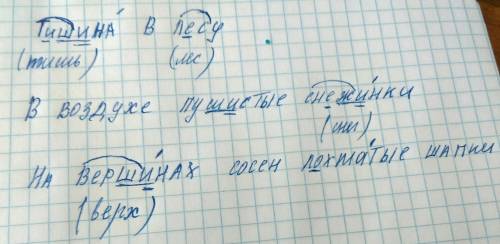 Тишина́ в лесу
(тишь) (лес)
В воздухе пушистые снежи́нки
(жи)
На верши́нах сосен лохма́тые шапки
(верх)